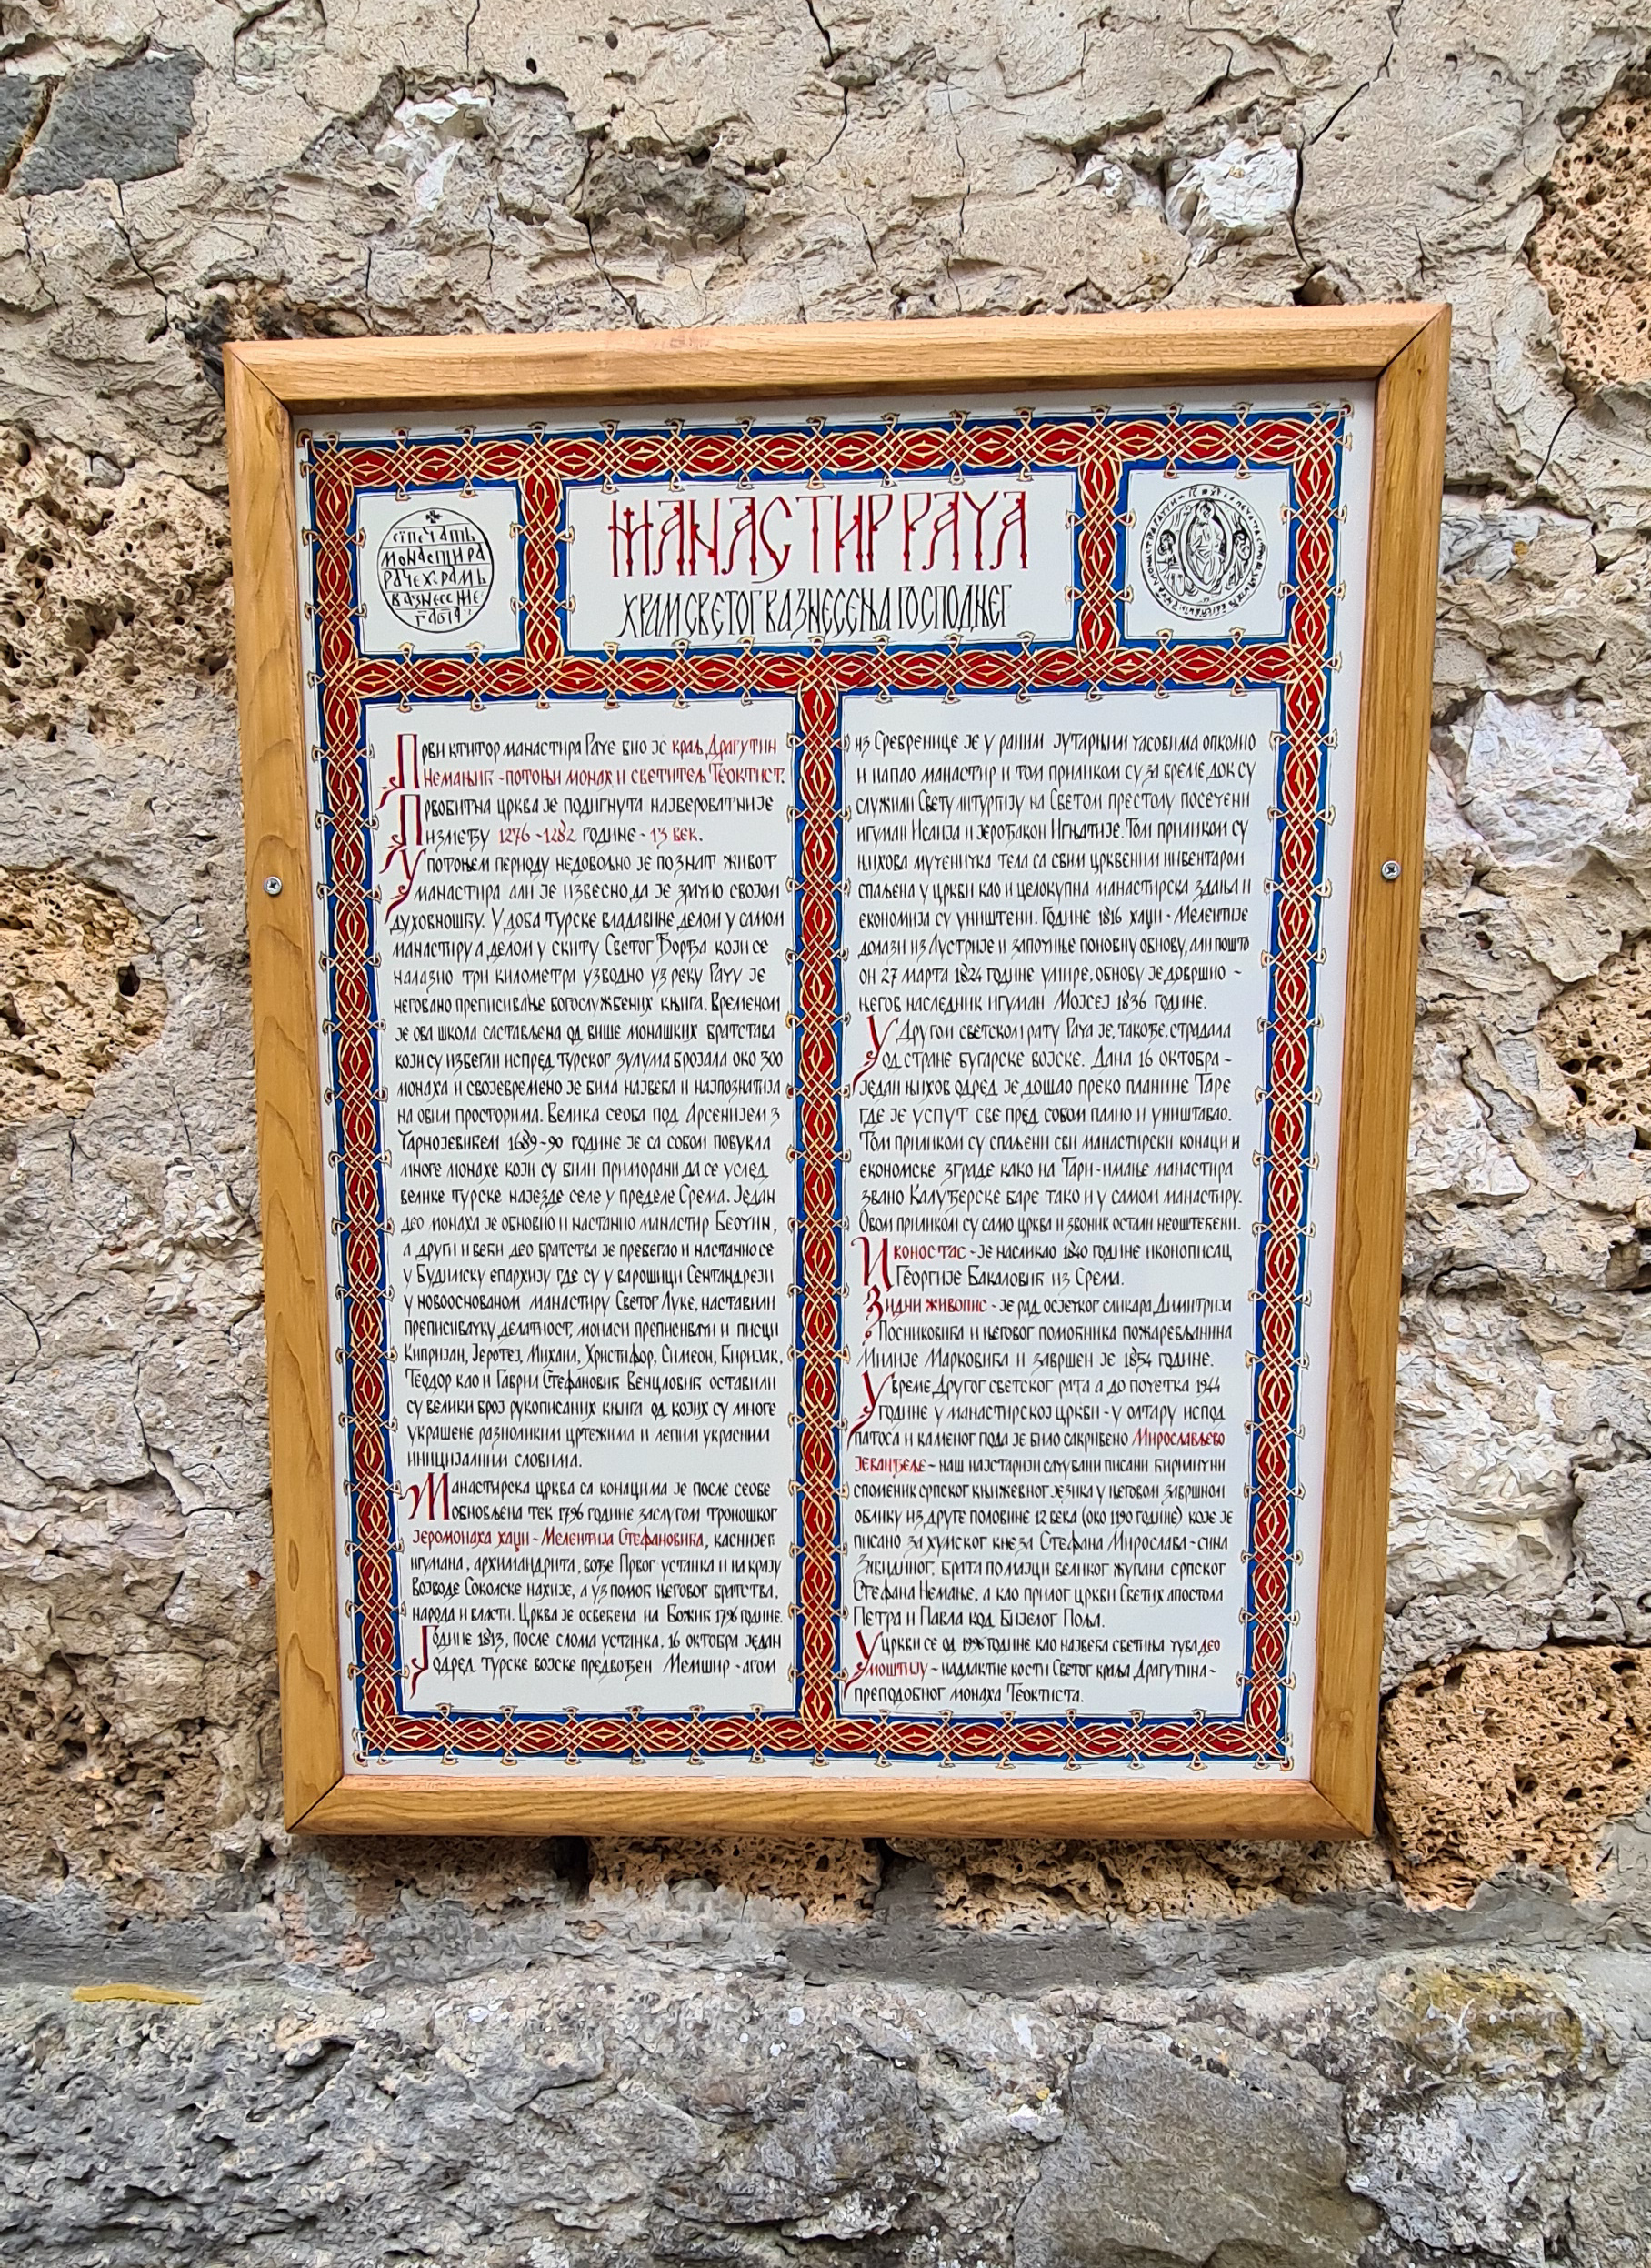 МАНАСТИР РАЧА
ХРАМ СВЕТОГ ВАЗНЕСЕЊА ГОСПОДЊЕГ
Први ктитор манастира Раче био је краљ Драгутин
Немањић - потоњи монах и светитељ Теоктист.
Првобитна црква је подигнута највероватније
између 1276 - 1282 године - 13 век.
У потоњем периоду недовољно је познат живот
манастира али је извесно да је зрачио својом
духовношћу. У доба турске владавине делом у самом
манастиру а делом у скиту Светог Ђорђа који се
налазио три километра узводно уз реку Рачу је
неговано преписивање богослужбених књига. Временом
је ова школа састављена од више монашких братстава
који су избегли испред турског зулума бројала око 300
монаха и својевремено је била највећа и најпознатија
на овим просторима. Велика сеоба под Арсенијем 3
Чарнојевићем 1689-90 године је са собом повукла
многе монахе који су били приморани да се услед
велике турске најезде селе у пределе Срема. Један
део монаха је обновио и настанио манастир Беочин,
а други и већи део братства је пребегао и настанио се
у Будимску епархију где су у варошици Сентандреји
у новооснованом манастиру Светог Луке, наставили
преписивачку делатност, монаси преписивачи и писци
Кипријан, Јеротеј, Михаил, Христифор, Симеон, Ћиријак,
Теодор као и Гаврил Стефановић Венцловић оставили
су велики број рукописаних књига од којих су многе
украшене разноликим цртежима и лепим украсним
иницијалним словима.
Манастирска црква са конацима је после сеобе
обновљена тек 1796 године заслугом троношког
јеромонаха хаџи - Мелентија Стефановића, каснијег
игумана, архимандрита, вође Првог устанка и на крају
Војводе Соколске нахије, а уз помоћ његовог братства,
народа и власти. Црква је освећена на Божић 1796 године.
Године 1813, после слома устанка, 16 октобра један
одред турске војске предвођен Мемшир - агом
из Сребренице је у раним јутарњим часовима опколио
и напао манастир и том приликом су за време док су
служили Свету литургију на Светом престолу посечени
игуман Исаија и јерођакон Игњатије. Том приликом су
њихова мученичка тела са свим црквеним инвентаром
спаљена у цркви као и целокупна манастирска здања и
економија су уништени. Године 1816 хаџи - Мелентије
долази из Аустрије и започиње поновну обнову, али пошто
он 27 марта 1824 године умире, обнову је довршио -
његов наследник игуман Мојсеј 1836 године.
У Другом светском рату Рача је, такође, страдала
од стране бугарске војске. Дана 16 октобра -
један њихов одред је дошао преко планине Таре
где је успут све пред собом палио и уништавао.
Том приликом су спаљени сви манастирски конаци и
економске зграде како на Тари - имање манастира
звано Калуђерске баре тако и у самом манастиру.
Овом приликом су само црква и звоник остали неоштећени.
Иконостас - је насликао 1840 године иконописац
Георгије Бакаловић из Срема.
Зидни живопис - је рад осјечког сликара Димитрија
Посниковића и његовог помоћника пожаревљанина
Милије Марковића и завршен је 1854 године.
У време Другог светског рата а до почетка 1944
године у манастирској цркви - у олтару испод
патоса и каменог пода је било сакривено Мирослављево
Јеванђеље - наш најстарији сачувани писани ћирилични
споменик српског књижевног језика у његовом завршном
облику из друге половине 12 века (око 1190 године) које је
писано за хумског кнеза Стефана Мирослава - сина
Завидиног, брата по мајци великог жупана српског
Стефана Немање, а као прилог цркви Светих апостола
Петра и Павла код Бијелог Поља.
У цркви се од 1996 године као највећа светиња чува део
моштију - надлактне кости Светог краља Драгутина -
преподобног монаха Теоктиста.